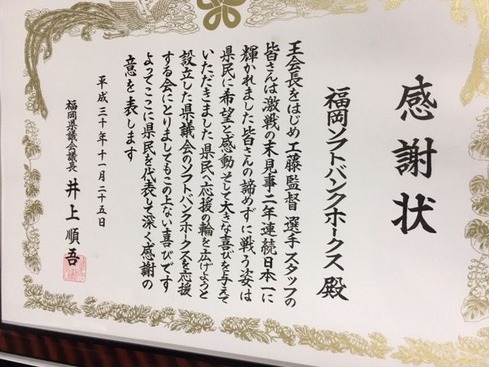 感謝状
福岡ソフトバンクホークス 殿
王会長をはじめ工藤監督 選手 スタッフの
皆さんは激戦の末見事二年連続日本一に
輝かれました皆さんの諦めずに戦う姿は
県民に希望と感動 そして大きな喜びを与えて
いただきました県民へ応援の輪を広げようと
設立した県議会のソフトバンクホークスを応援
する会にとりましてもこの上ない喜びです
よってここに県民を代表して深く感謝の
意を表します
平成三十年十一月二十五日
福岡県議会議長 井上順吾